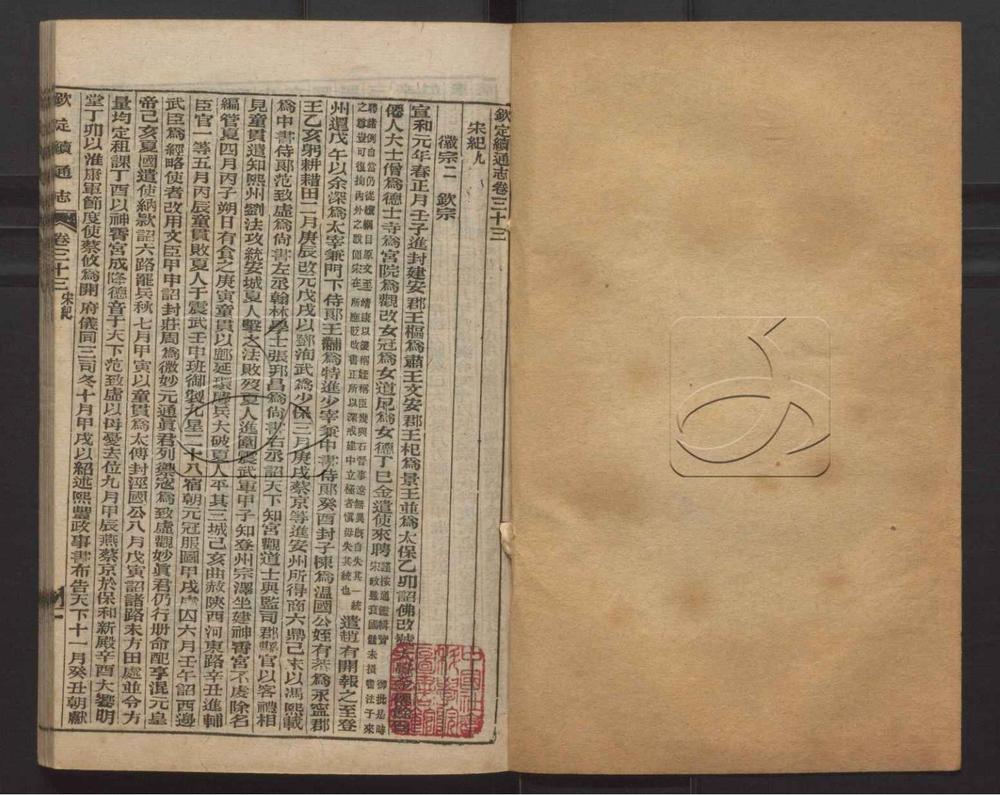 欽定續通志卷三十三
宋紀九
徽宗二　欽宗
宣和元年春正月壬子進封建安郡王樞爲肅王文安郡王杞爲景王並爲太保乙卯詔佛改號
僊人大士僧爲德士寺爲宮院爲觀改女冠爲女道尼爲女德丁巳金遣使來聘
遣趙有開報之至登
州還戊午以余深爲太宰兼門下侍郎王黼爲特進少宰兼中書侍郎癸酉封子楝爲溫國公姪有恭爲永寧郡
王乙亥躬耕耤田二月庚辰改元戊戌以鄧洵武爲少保三月庚戌蔡京等進安州所得商六鼎己未以馮熙載
爲中書侍郎范致虛爲尚書左丞翰林學士張邦昌爲尚書右丞詔天下知宮觀道士與監司郡縣官以客禮相
見童貫遣知熙州劉法攻統安城夏人擊之法敗歿夏人進圍震武軍甲子知登州宗澤坐建神霄宮不虔除名
編管夏四月丙子朔日有食之庚寅童貫以鄜延環慶兵大破夏人平其三城己亥曲赦陝西河東路辛丑進輔
臣官一等五月丙辰童貫敗夏人于震武壬申班御製九星二十八宿朝元冠服圖甲戌
囚六月壬午詔西邊
武臣爲經略使者改用文臣甲申詔封莊周爲微妙元通眞君列禦寇爲致虛觀妙眞君仍行册命配享混元皇
帝己亥夏國遣使納款詔六路罷兵秋七月甲寅以童貫爲太傅封涇國公八月戊寅詔諸路未方田處並令方
量均定租課丁酉以神霄宮成降德音于天下范致虛以母憂去位九月甲辰燕蔡京於保和新殿辛酉大饗明
堂丁卯以淮康軍節度使蔡攸爲開府儀同三司冬十月甲戌以紹述熙豐政事書布告天下十一月癸丑朝獻
欽定續通志
卷三十三
宋紀